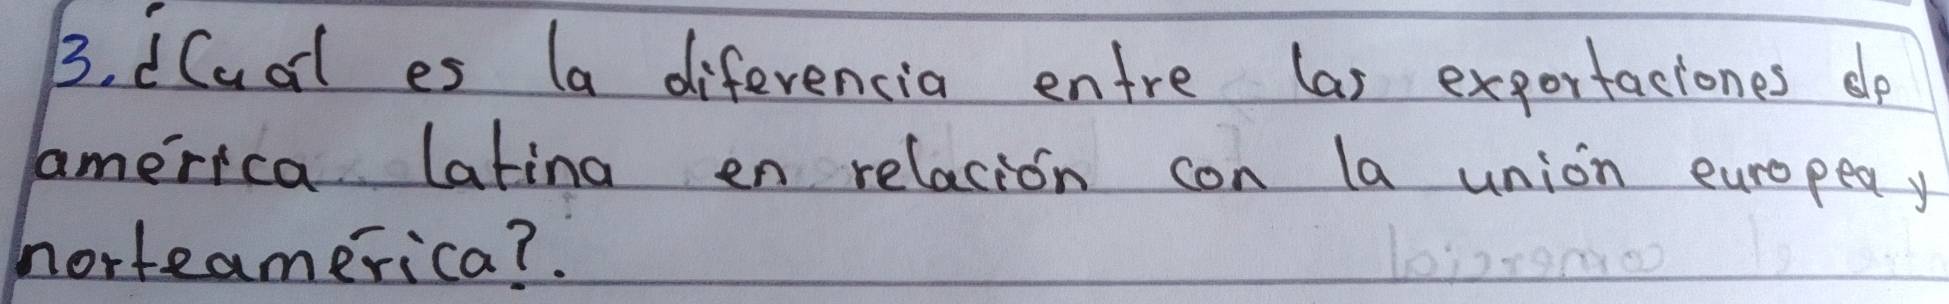 3. ¿Cuál es la diferencia entre las exportaciones de
américa latina en relación con la unión europea y
norteamérica?.
comercial